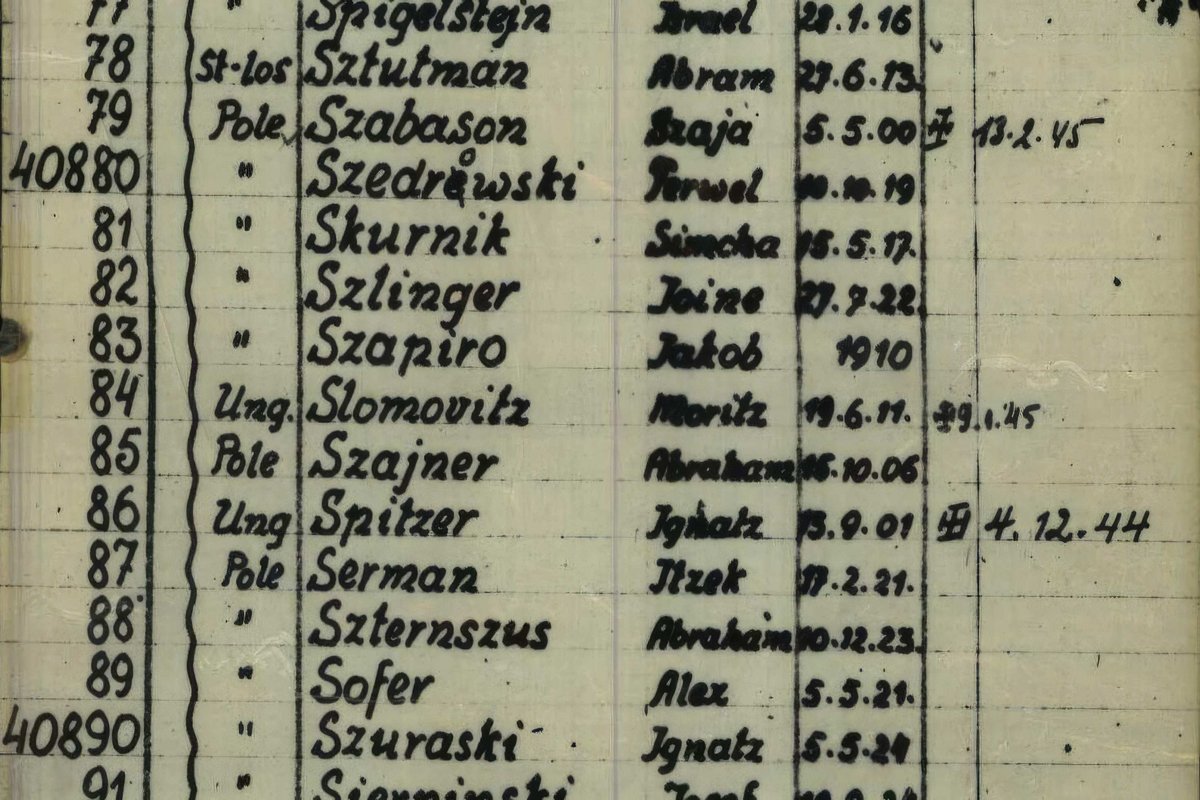 77 " Spigelstejn Israel 28.1.16
78 St-los Sztutman Abram 27.6.13.
79 Pole Szabason Szaja 5.5.00 13.2.45
40880 " Szedrowski Perwel 10.10.19
81 " Skurnik Simcha 15.5.17.
82 " Szlinger Joine 27.7.22.
83 " Szapiro Jakob 1910
84 Ung. Slomovitz Moritz 19.6.11. 9.1.45
85 Pole Szajner Abraham 16.10.06
86 Ung Spitzer Ignatz 13.9.01 III 4.12.44
87 Pole Serman Itzek 17.2.21.
88 " Szternszus Abraham 10.12.23.
89 " Sofer Alex 5.5.21.
40890 " Szuraski Ignatz 5.5.24
91 "